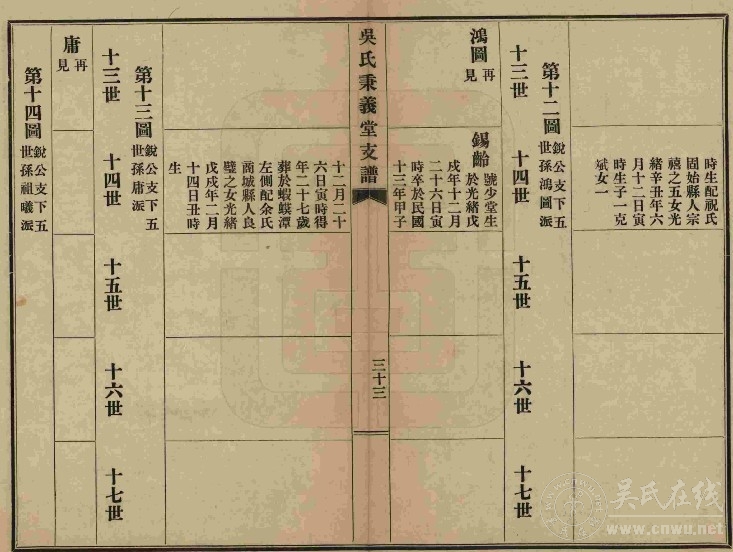 時生配祝氏
固始縣人宗
禧之五女光
緒辛丑年六
月十二日寅
時生子一克
斌女一
第十二圖 銳公支下五
世孫鴻圖派
十三世 十四世 十五世 十六世 十七世
鴻圖 再
見
錫齡 號少堂生
於光緒戊
戌年十二月
二十六日寅
時卒於民國
十三年甲子
吳氏秉義堂支譜
三十三
十二月二十
六日寅時得
年二十七歲
葬於蝦蟆潭
左側配余氏
商城縣人良
璧之女光緒
戊戌年二月
十四日丑時
生
第十三圖 銳公支下五
世孫庸派
十三世 十四世 十五世 十六世 十七世
庸 再
見
第十四圖 銳公支下五
世孫祖曦派
吴氏在线
www.cnwu.net